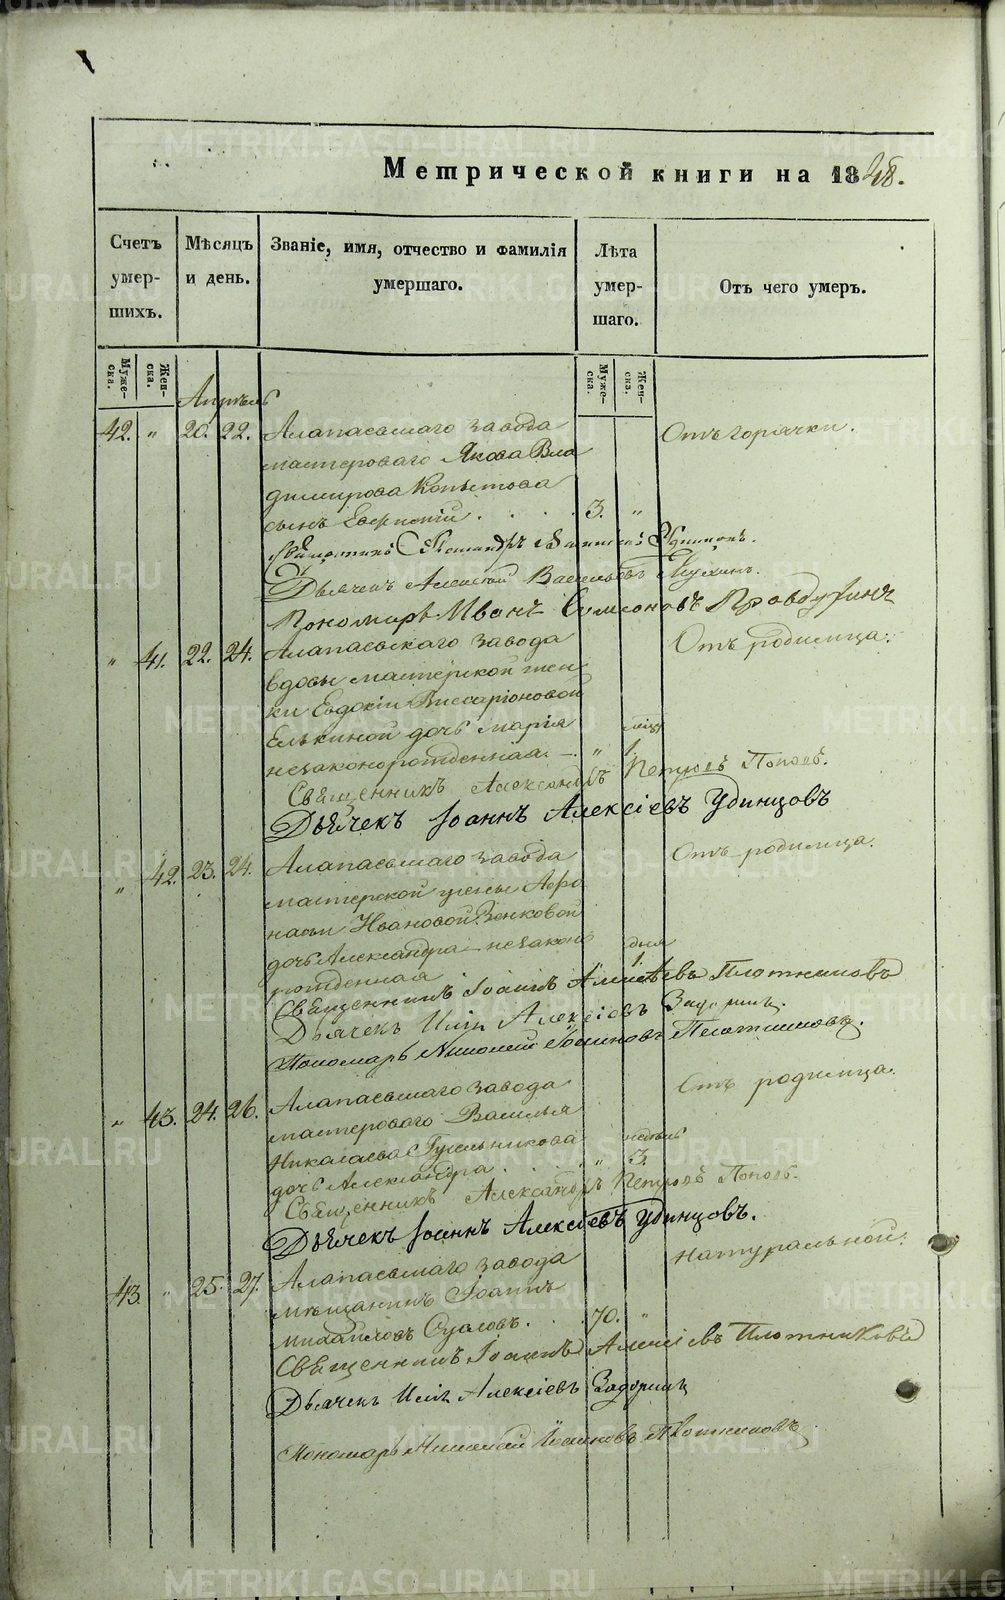 Метрической книги на 1848.
Счетъ умершихъ.
Мѣсяцъ и день.
Званіе, имя, отчество и фамилія умершаго.
Лѣта умершаго.
Отъ чего умеръ.
Мужеска.
Женска.
Мужеска.
Женска.
Апрѣль
42. " 20. 22. Алапаевскаго завода Отъ горячки.
мастероваго Якова Вла
димирова Копытова
сынъ Евгеній . . . . 3. "
Священникъ
Дьячекъ Алексѣй Васильевъ
Пономарь Иванъ Симеоновъ
" 41. 22. 24. Алапаевскаго завода Отъ родимца.
вдовы мастерской жен
ки Евдокіи Виссаріоновой
Елькиной дочь Марія мѣся
незаконорожденная. — . " 1.
Священникъ Александръ Петровъ Поповъ.
Дьячекъ Іоаннъ Алексіевъ Удинцовъ
" 42. 23. 24. Алапаевскаго завода Отъ родимца.
мастерской Афо
насьи Ивановой Зенковой
дочь Александра — незакон дня
рожденная 1.
Священникъ Іоаннъ Алексѣевъ Плотниковъ
Дьячекъ Илія Алексіевъ Задоринъ.
Пономарь Николай Іоанновъ Плотниковъ.
" 43. 24. 26. Алапаевскаго завода Отъ родимца.
мастероваго Василья
Николаева Гусельникова недѣль
дочь Александра . . . . " 3.
Священникъ Александръ Петровъ Поповъ.
Дьячекъ Іоаннъ Алексіевъ Удинцовъ.
43. " 25. 27. Алапаевскаго завода Натуральной.
мѣщанинъ Іоаннъ
Михайловъ . . . 70. "
Священникъ Іоаннъ Алексіевъ Плотниковъ
Дьячекъ Илія Алексіевъ Задоринъ
Пономарь Николай Іоанновъ Плотниковъ
METRIKI.GASO-URAL.RU